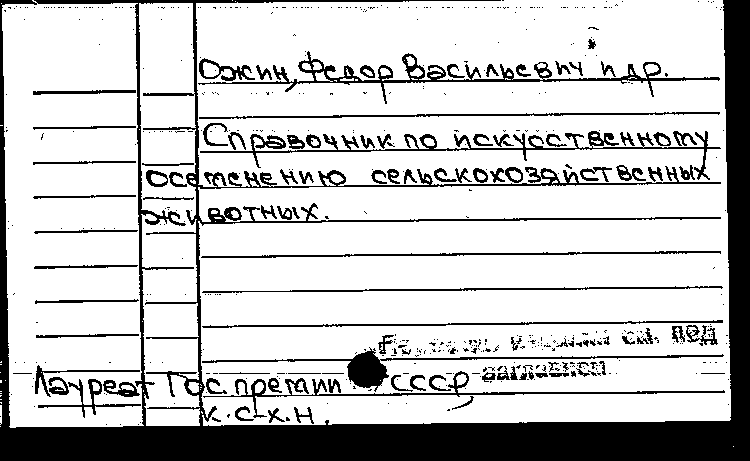 Ожин, Федор Васильевич и др.
Справочник по искусственному
осеменению сельскохозяйственных
животных.
см. под
заглавием
Лауреат Гос. премии СССР,
к.с-х.н.